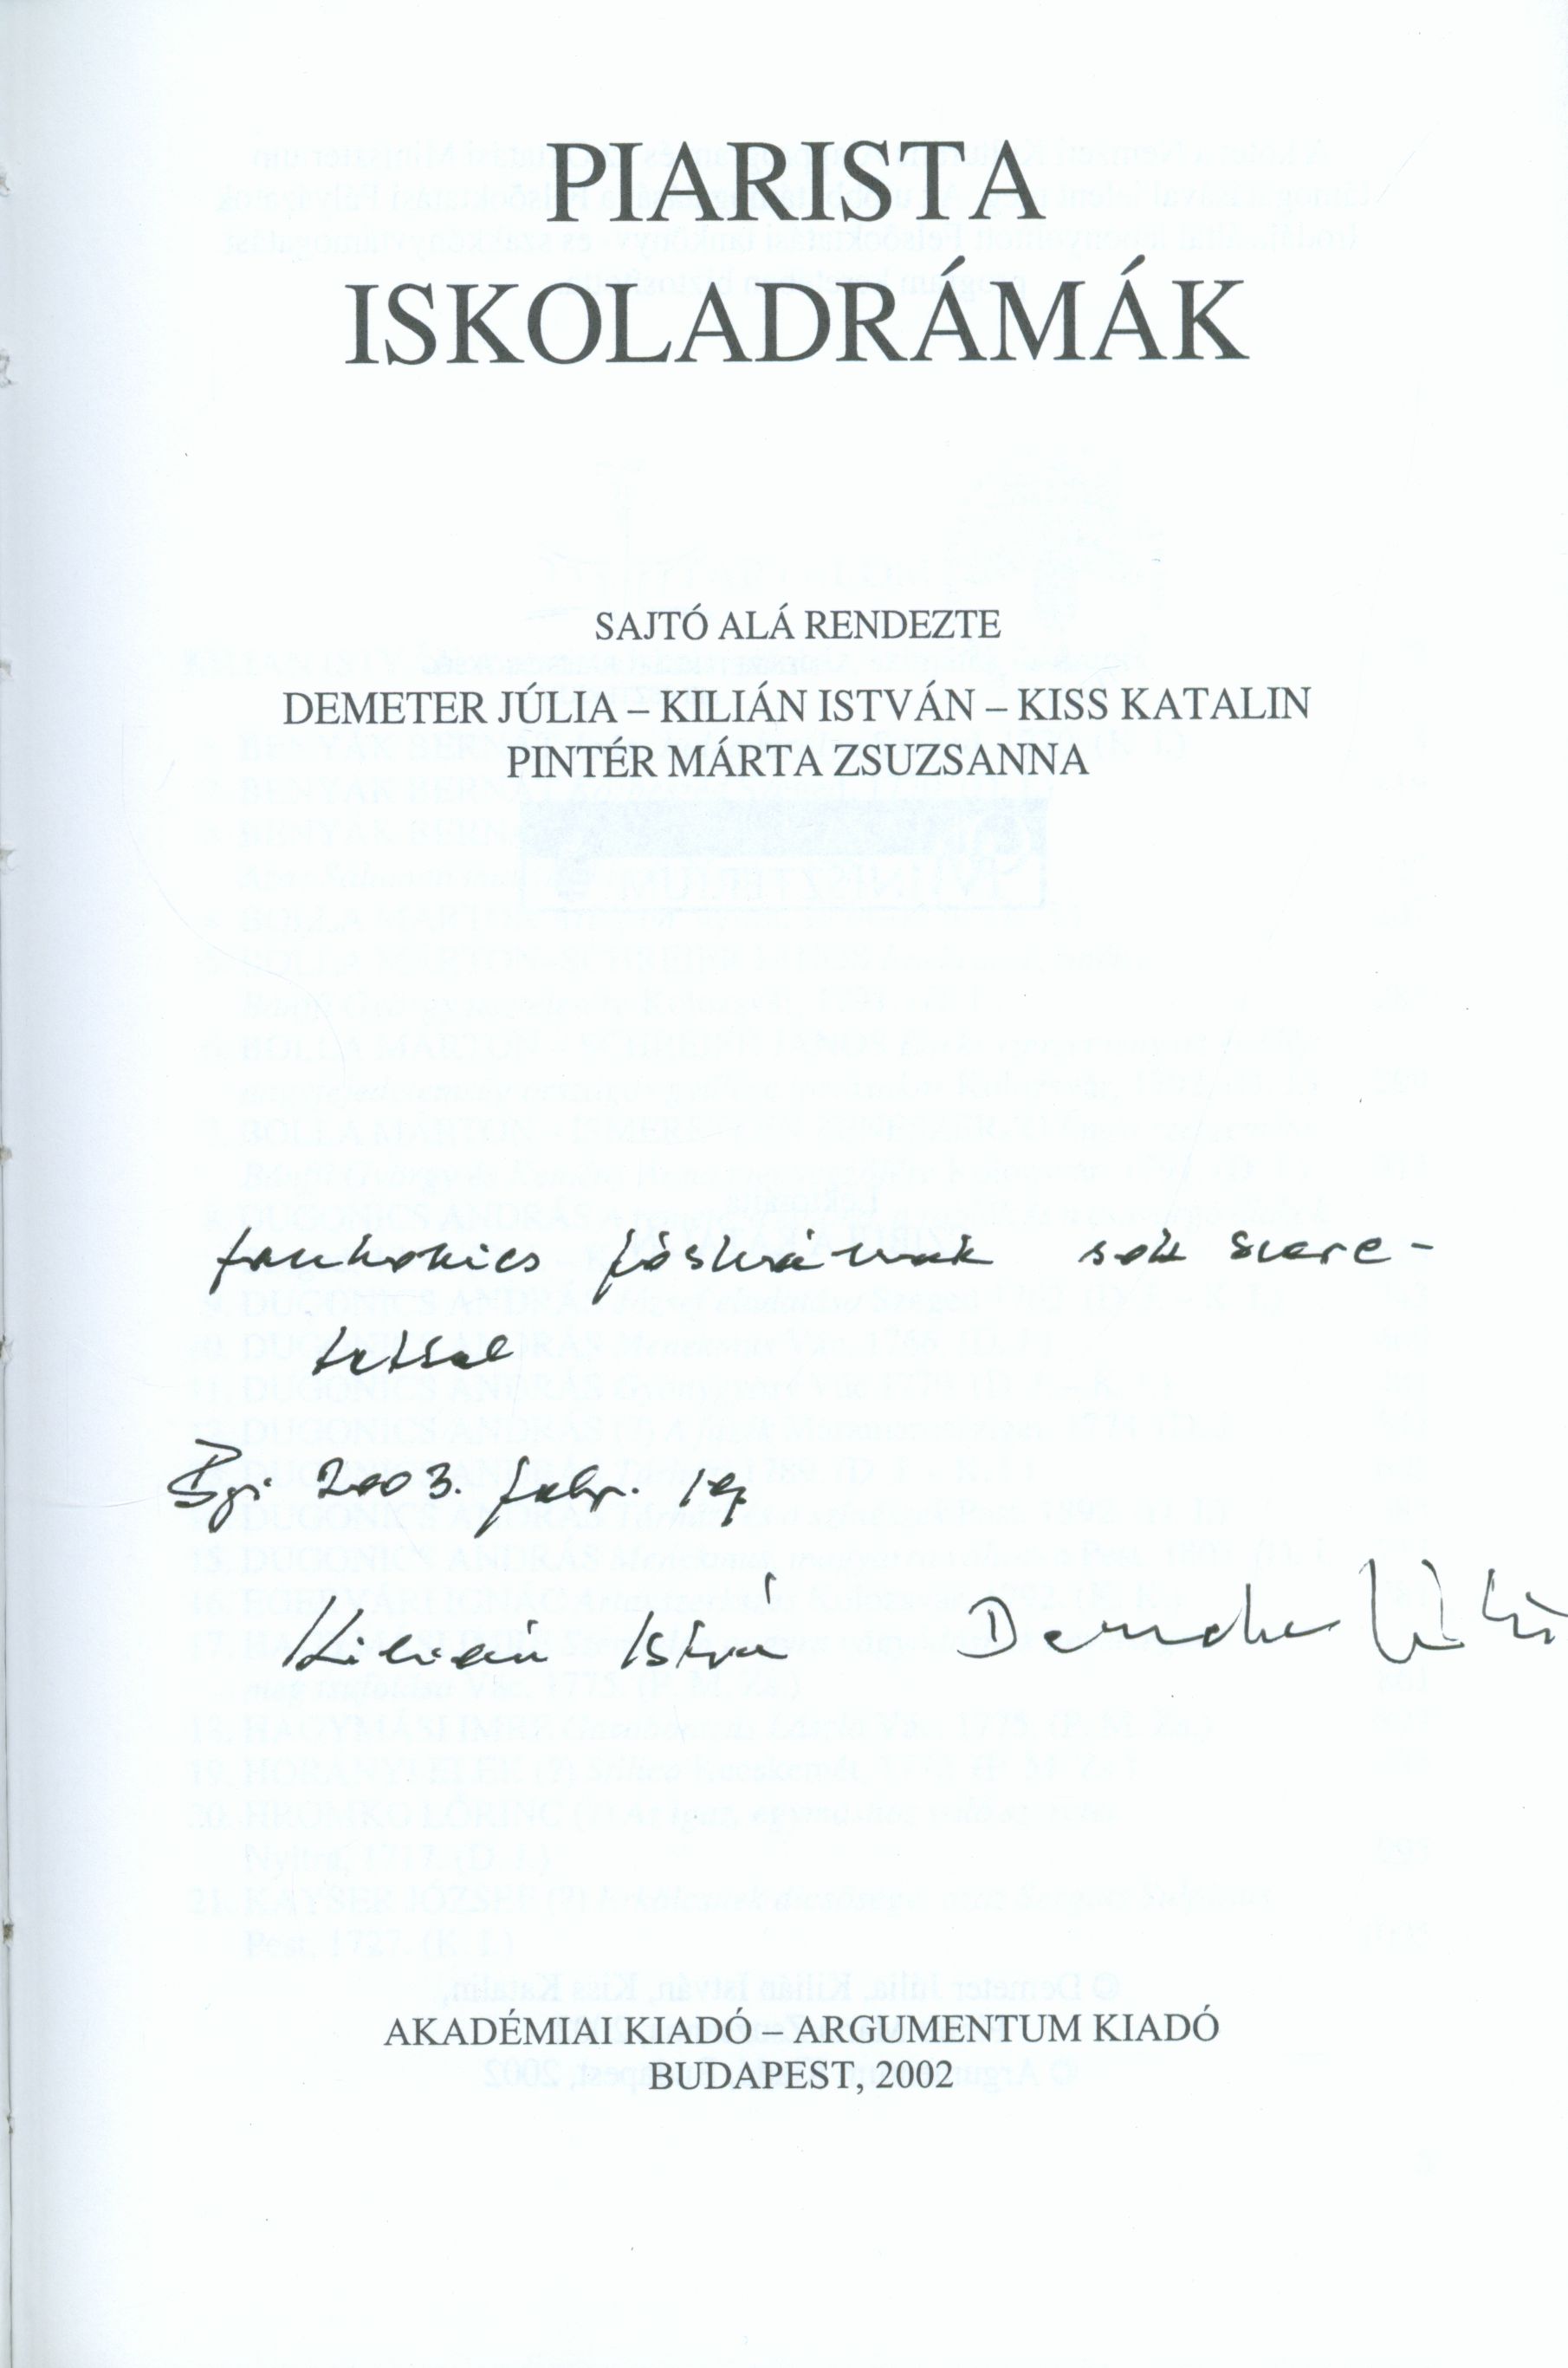 PIARISTA
ISKOLADRÁMÁK
SAJTÓ ALÁ RENDEZTE
DEMETER JÚLIA – KILIÁN ISTVÁN – KISS KATALIN
PINTÉR MÁRTA ZSUZSANNA
Jankovics Jóskának sok szere-
tettel
Bp. 2003. febr. 19.
Kilián István Demeter Júlia
AKADÉMIAI KIADÓ – ARGUMENTUM KIADÓ
BUDAPEST, 2002